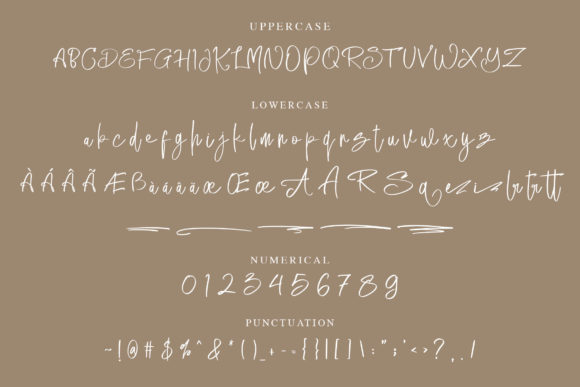 UPPERCASE
ABCDEFGHIJKLMNOPQRSTUVWXYZ
LOWERCASE
a b c d e f g h i j k l m n o p q r s t u v w x y z
À Á Â Ã Æ ß à á â ã æ Œ œ A A R S q e z i s lr tr tt
NUMERICAL
0 1 2 3 4 5 6 7 8 9
PUNCTUATION
~ ! @ # $ % ^ & * ( ) _ + - = { } | [ ] \ : " ; ' < > ? , . /